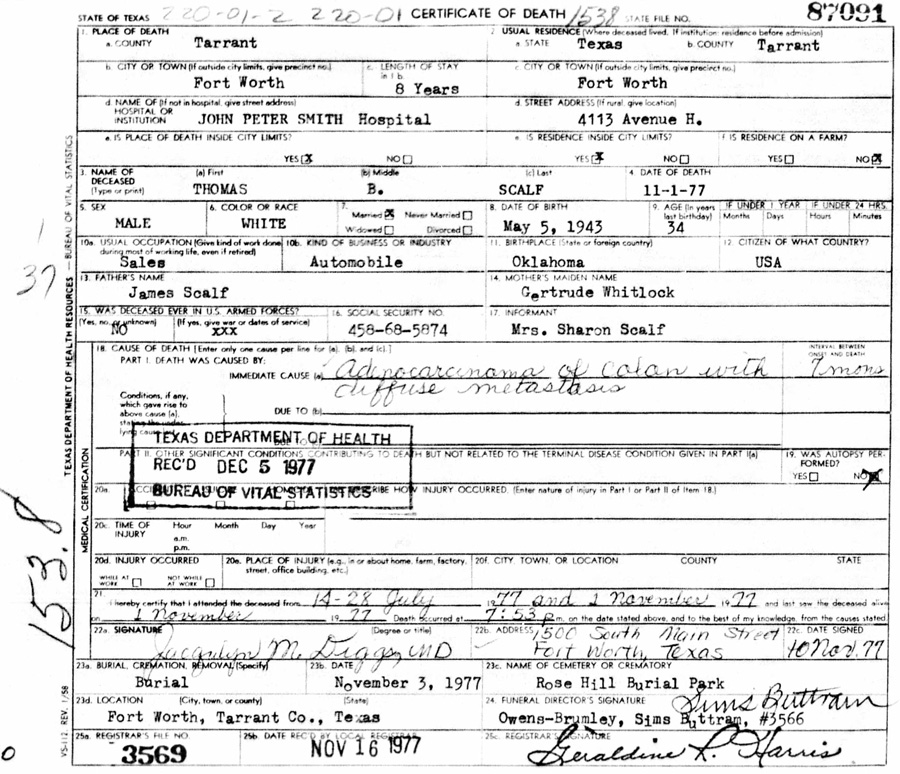 STATE OF TEXAS 220-01-2 220-01 CERTIFICATE OF DEATH 1538 STATE FILE NO. 87091
1. PLACE OF DEATH 2. USUAL RESIDENCE (Where deceased lived. If institution: residence before admission)
a. COUNTY Tarrant a. STATE Texas b. COUNTY Tarrant
b. CITY OR TOWN (If outside city limits, give precinct no.) c. LENGTH OF STAY in 1 b. c. CITY OR TOWN (If outside city limits, give precinct no.)
Fort Worth 8 Years Fort Worth
d. NAME OF (If not in hospital, give street address) HOSPITAL OR INSTITUTION d. STREET ADDRESS (If rural, give location)
JOHN PETER SMITH Hospital 4113 Avenue H.
e. IS PLACE OF DEATH INSIDE CITY LIMITS? e. IS RESIDENCE INSIDE CITY LIMITS? f. IS RESIDENCE ON A FARM?
YES X NO YES X NO YES NO X
3. NAME OF DECEASED (Type or print) (a) First (b) Middle (c) Last 4. DATE OF DEATH
THOMAS B. SCALF 11-1-77
5. SEX 6. COLOR OR RACE 7. Married X Never Married 8. DATE OF BIRTH 9. AGE (In years last birthday) IF UNDER 1 YEAR IF UNDER 24 HRS.
Months Days Hours Minutes
MALE WHITE Widowed Divorced May 5, 1943 34
10a. USUAL OCCUPATION (Give kind of work done during most of working life, even if retired) 10b. KIND OF BUSINESS OR INDUSTRY 11. BIRTHPLACE (State or foreign country) 12. CITIZEN OF WHAT COUNTRY?
Sales Automobile Oklahoma USA
13. FATHER'S NAME 14. MOTHER'S MAIDEN NAME
James Scalf Gertrude Whitlock
15. WAS DECEASED EVER IN U.S. ARMED FORCES? 16. SOCIAL SECURITY NO. 17. INFORMANT
(Yes, no, or unknown) (If yes, give war or dates of service)
NO xxx 458-68-5874 Mrs. Sharon Scalf
18. CAUSE OF DEATH [Enter only one cause per line for (a), (b), and (c).] INTERVAL BETWEEN ONSET AND DEATH
PART I. DEATH WAS CAUSED BY:
IMMEDIATE CAUSE (a) Adinocarcinoma of colan with 7 mons
diffuse metastasis
Conditions, if any, which gave rise to above cause (a), stating the under-lying cause last.
DUE TO (b)
TEXAS DEPARTMENT OF HEALTH
REC'D DEC 5 1977
BUREAU OF VITAL STATISTICS
PART II. OTHER SIGNIFICANT CONDITIONS CONTRIBUTING TO DEATH BUT NOT RELATED TO THE TERMINAL DISEASE CONDITION GIVEN IN PART I(a) 19. WAS AUTOPSY PER-FORMED?
YES NO X
20a. HOW INJURY OCCURRED. (Enter nature of injury in Part I or Part II of Item 18.)
20c. TIME OF INJURY Hour Month Day Year
a.m.
p.m.
20d. INJURY OCCURRED 20e. PLACE OF INJURY (e.g., in or about home, farm, factory, street, office building, etc.) 20f. CITY, TOWN, OR LOCATION COUNTY STATE
WHILE AT WORK NOT WHILE AT WORK
21. I hereby certify that I attended the deceased from 14-28 July 1977 and 1 November 1977 and last saw the deceased alive
on 1 November 1977 Death occurred at 7:53 p.m. on the date stated above, and to the best of my knowledge, from the causes stated
22a. SIGNATURE (Degree or title) 22b. ADDRESS 1500 South Main Street 22c. DATE SIGNED
Jacquelyn M. Diggs, MD Fort Worth, Texas 10 Nov. 77
23a. BURIAL, CREMATION, REMOVAL (Specify) 23b. DATE 23c. NAME OF CEMETERY OR CREMATORY
Burial November 3, 1977 Rose Hill Burial Park
23d. LOCATION (City, town, or county) (State) 24. FUNERAL DIRECTOR'S SIGNATURE Sims Buttram
Fort Worth, Tarrant Co., Texas Owens-Brumley, Sims Buttram, #3566
25a. REGISTRAR'S FILE NO. 25b. DATE REC'D BY LOCAL REGISTRAR 25c. REGISTRAR'S SIGNATURE
3569 NOV 16 1977 Geraldine R. Harris
TEXAS DEPARTMENT OF HEALTH RESOURCES — BUREAU OF VITAL STATISTICS
MEDICAL CERTIFICATION
VS-112, REV. 1/58
153.8